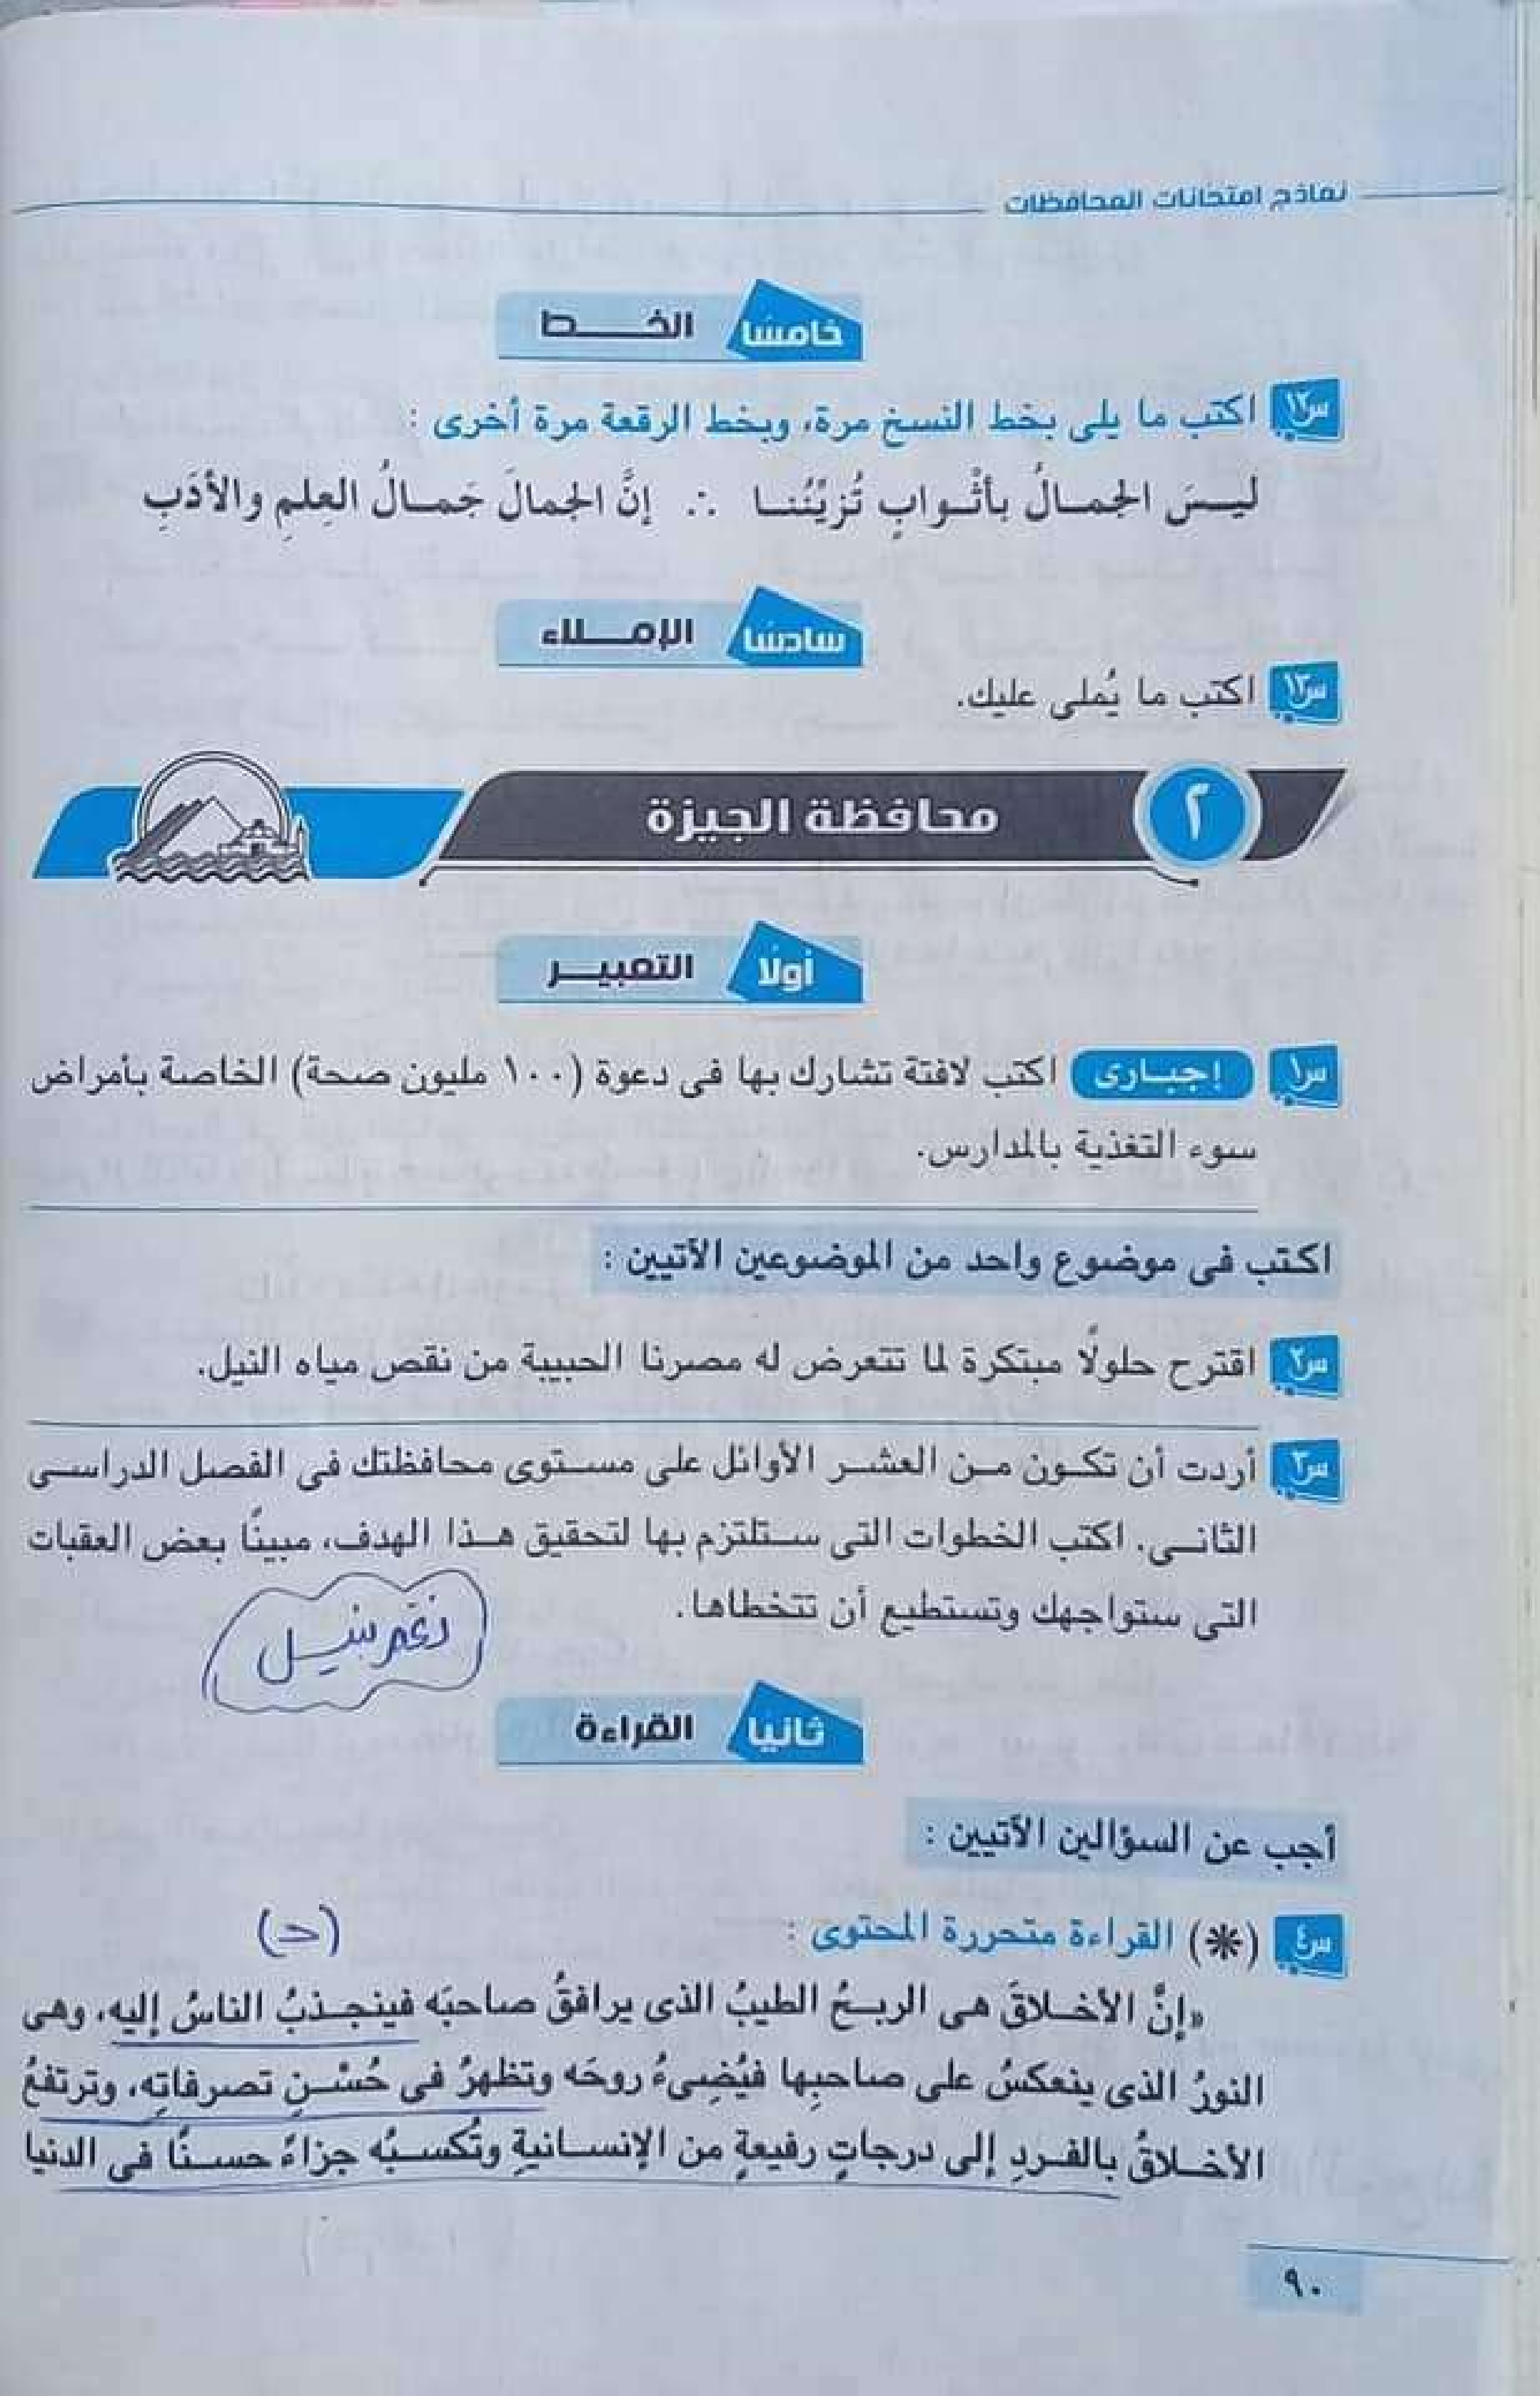 نماذج امتحانات المحافظات
خامسًا الخـــط
س١٢ اكتب ما يلى بخط النسخ مرة، وبخط الرقعة مرة أخرى :
ليـسَ الجمـالُ بأثْـوابٍ تُزيِّنُنـا ∴ إنَّ الجمالَ جَمـالُ العِلمِ والأدَبِ
سادسًا الإمـــلاء
س١٣ اكتب ما يُملى عليك.
٢ محافظة الجيزة
أولًا التعبيـــر
س١ إجبـارى اكتب لافتة تشارك بها فى دعوة (١٠٠ مليون صحة) الخاصة بأمراض
سوء التغذية بالمدارس.
اكتب فى موضوع واحد من الموضوعين الآتيين :
س٢ اقترح حلولًا مبتكرة لما تتعرض له مصرنا الحبيبة من نقص مياه النيل.
س٣ أردت أن تكـون مـن العشـر الأوائل على مسـتوى محافظتك فى الفصل الدراسـى
الثانـى. اكتب الخطوات التى سـتلتزم بها لتحقيق هـذا الهدف، مبينًا بعض العقبات
التى ستواجهك وتستطيع أن تتخطاها.
ثانيا القراءة
أجب عن السؤالين الآتيين :
س٤ (*) القراءة متحررة المحتوى :
«إنَّ الأخـلاقَ هى الريـحُ الطيبُ الذى يرافقُ صاحبَه فينجـذبُ الناسُ إليه، وهى
النورُ الذى ينعكسُ على صاحبِها فيُضِىءُ روحَه وتظهرُ فى حُسْـنِ تصرفاتِه، وترتفعُ
الأخـلاقُ بالفـردِ إلى درجاتٍ رفيعةٍ من الإنسـانيةِ وتُكسـبُه جزاءً حسـنًا فى الدنيا
٩٠